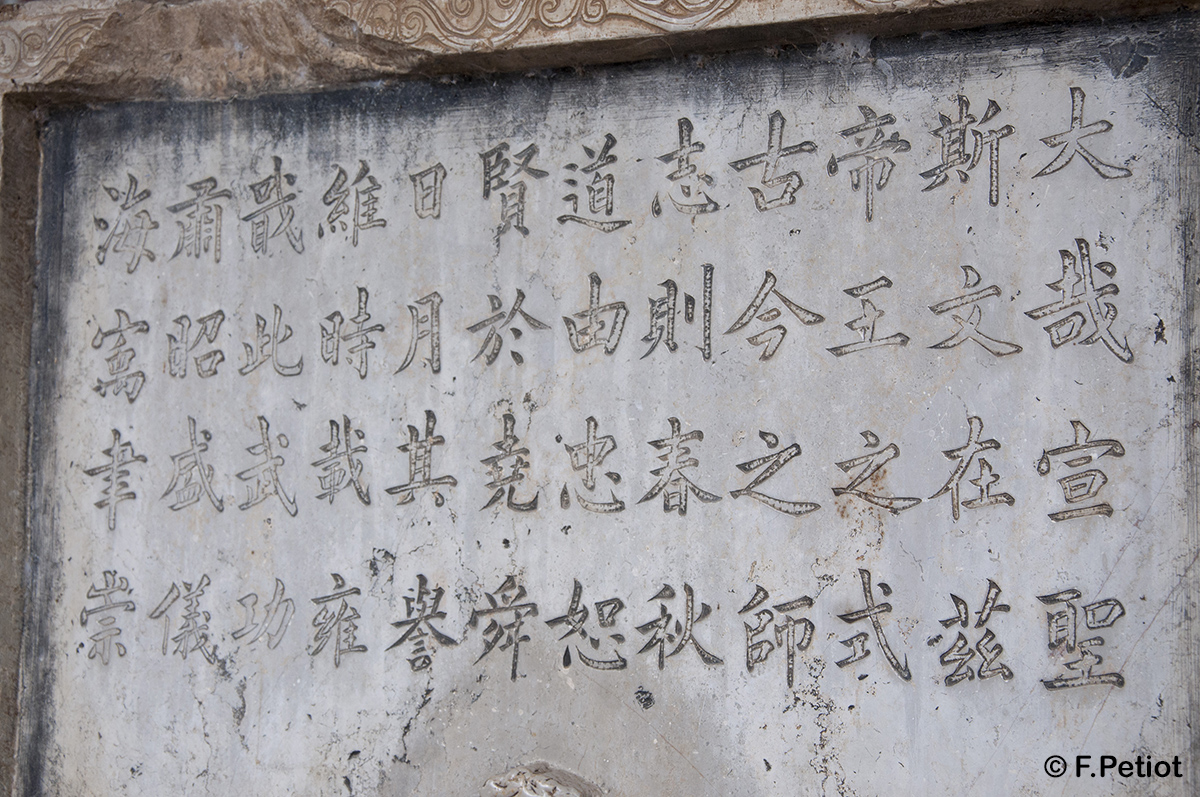 大哉宣聖
斯文在茲
帝王之式
古今之師
志則春秋
道由忠恕
賢於堯舜
日月其譽
維時載雍
戢此武功
肅昭盛儀
海寓聿崇
© F.Petiot